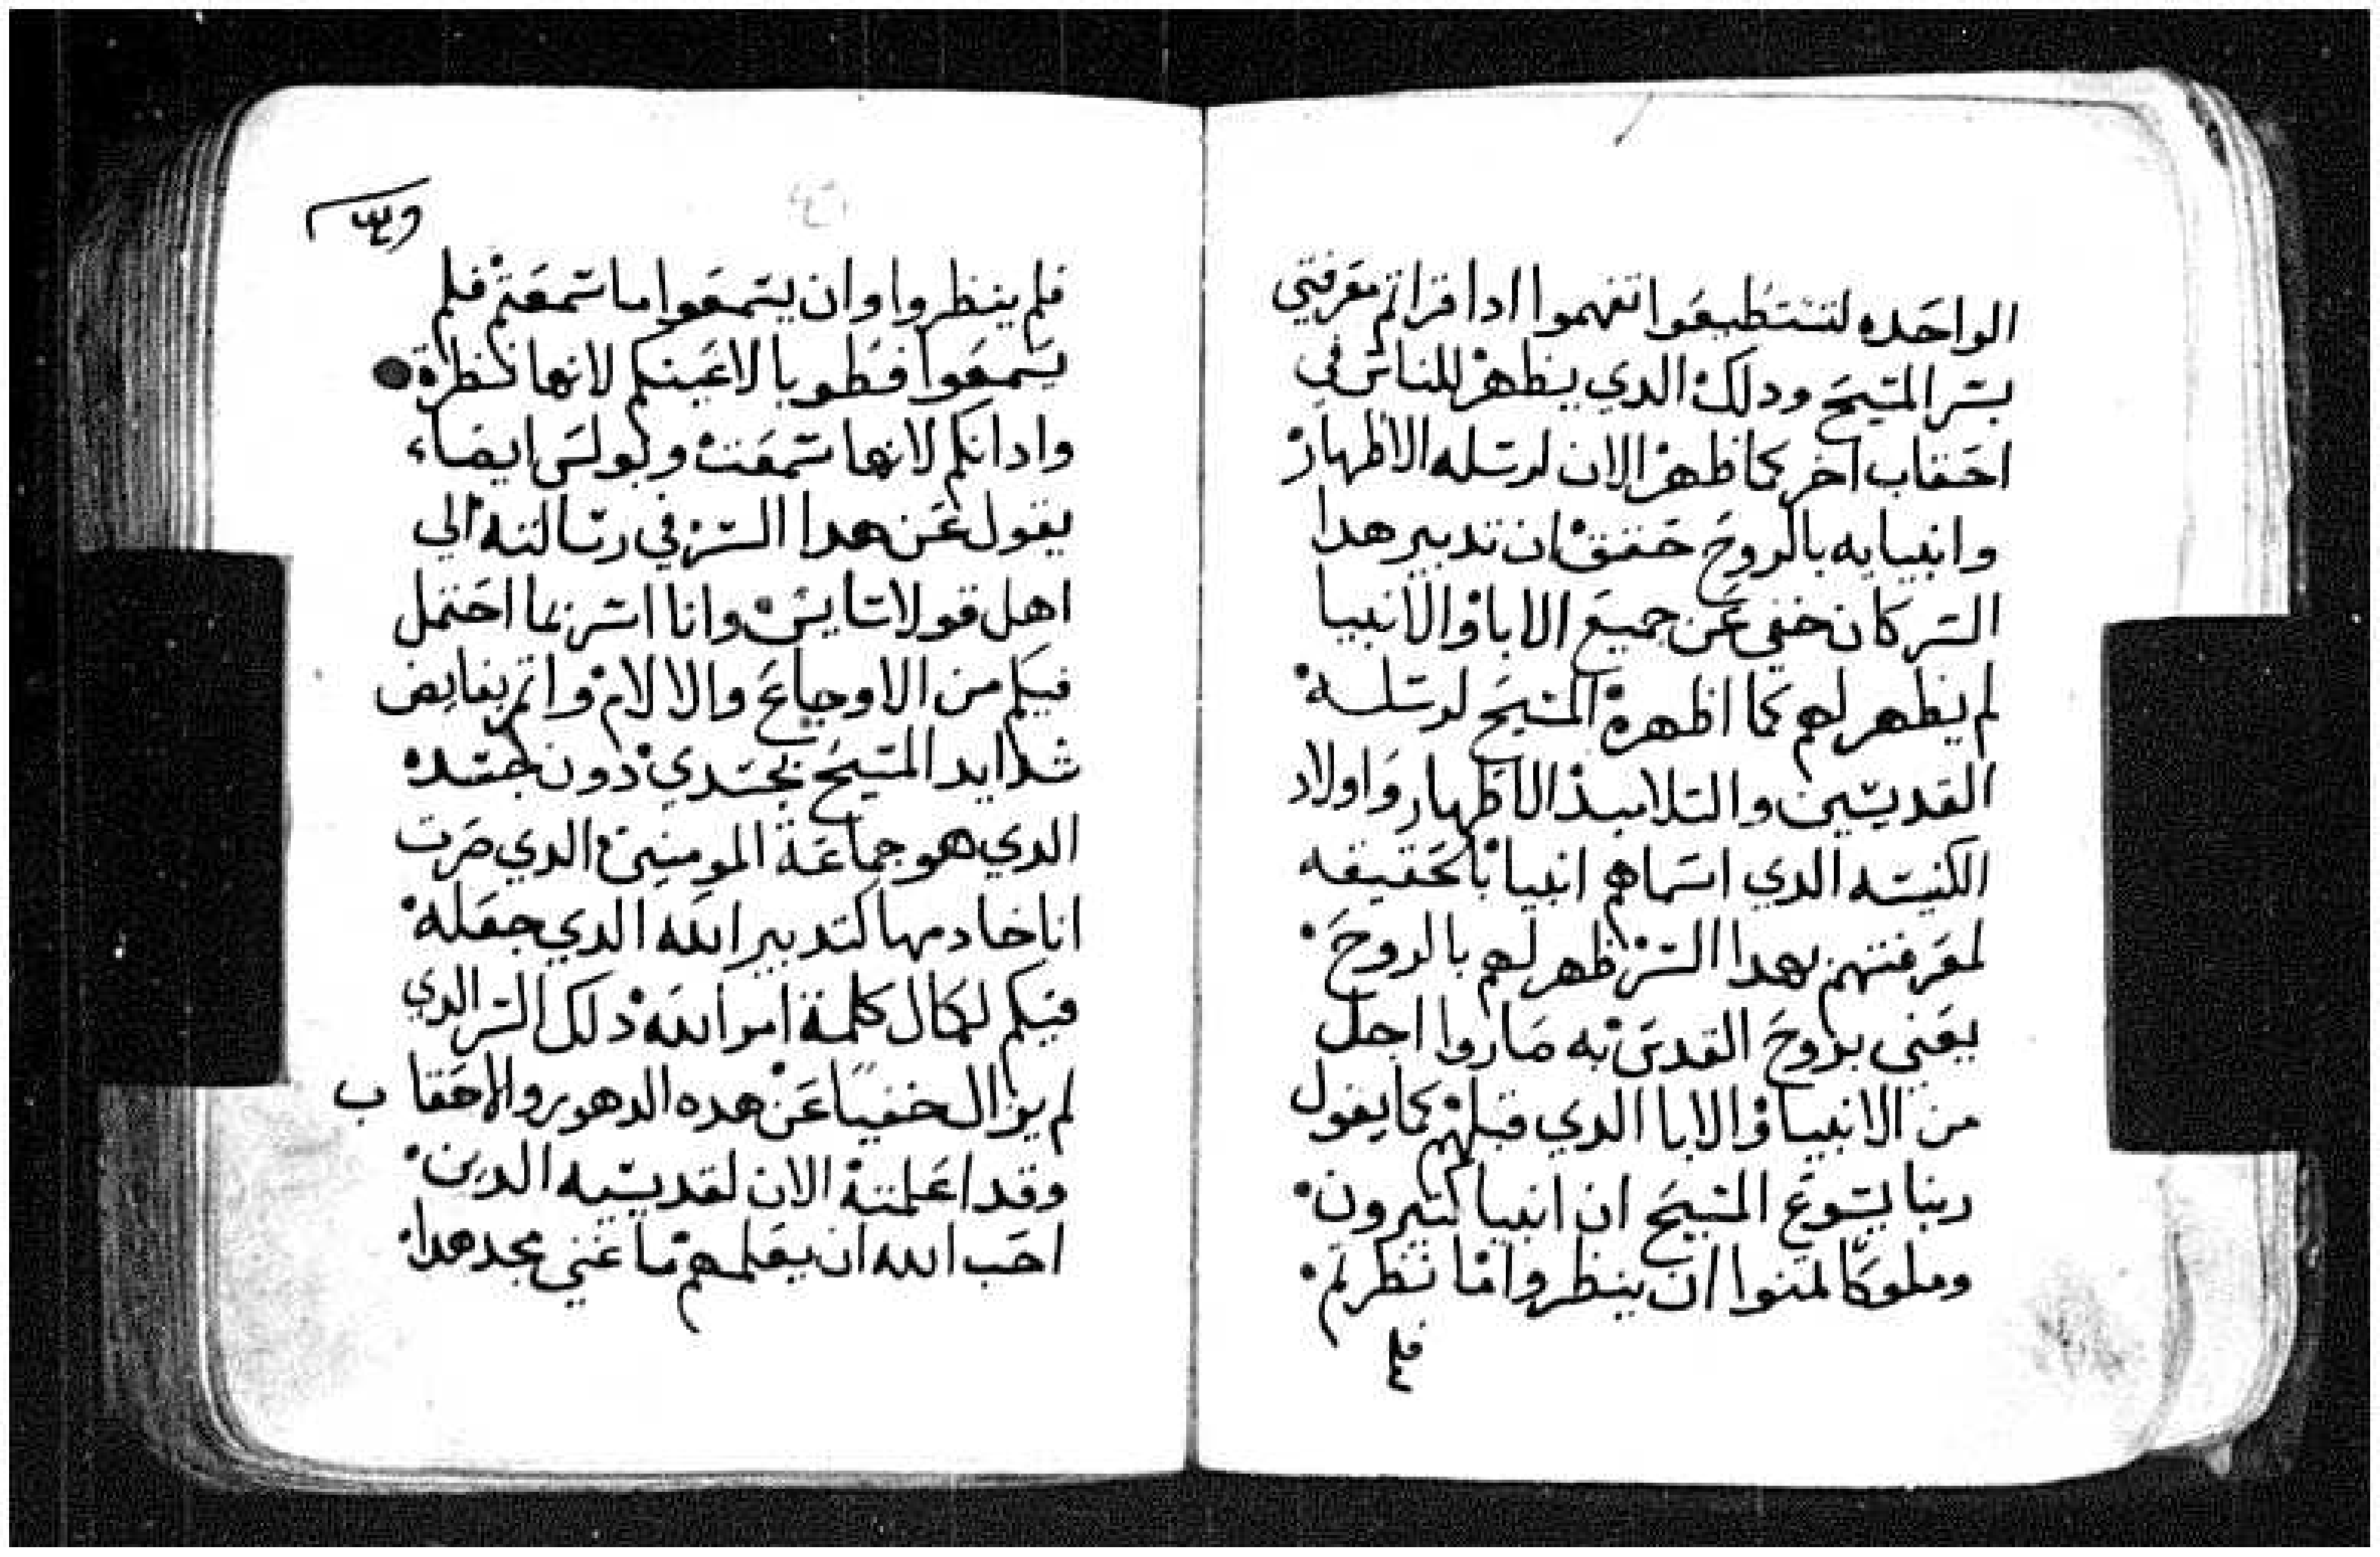 الواحده لتستطيعوا تفهموا ادا قراتم معرفتي
بسر المسيح ودلك الدي يظهر للناس في
احقاب اخر كما ظهر الان لرسله الاظهار
وانبيايه بالروح حقق ان تدبير هدا
السر كان خفي عن جميع الابا والانبيا
لم يظهر لهم كما اظهره المسيح لرسله
القديسين والتلاميذ الاظهار واولاد
الكنيسه الدي اسماهم انبيا بالحقيقه
لمعرفتهم بهدا السر ظهر لهم بالروح
يعني بروح القدس به صاروا اجل
من الانبيا والابا الدي قبلهم كما يقول
ربنا يسوع المسيح ان انبيا كتيرون
وملوكا تمنوا ان ينظروا ما نظرتم
فلم
فلم ينظروا وان يسمعوا ما سمعتم فلم
يسمعوا فطوبا لاعينكم لانها نظرة
وادانكم لانها سمعت وبولس ايضاء
يقول عن هدا السر في رسالته الي
اهل قولاسايس وانا اسر بما احتمل
فيكم من الاوجاع والالام واتم نقايض
شدايد المسيح بجسدي دون جسده
الدي هو جماعة المومنين الدي صرت
انا خادمها كتدبير الله الدي جعله
فيكم لكمال كلمة امر الله دلك السر الدي
لم يزال خفيا عن هده الدهور والاحقاب
وقد اعلمته الان لقديسيه الدين
احب الله ان يعلمهم ما غني مجد هدا